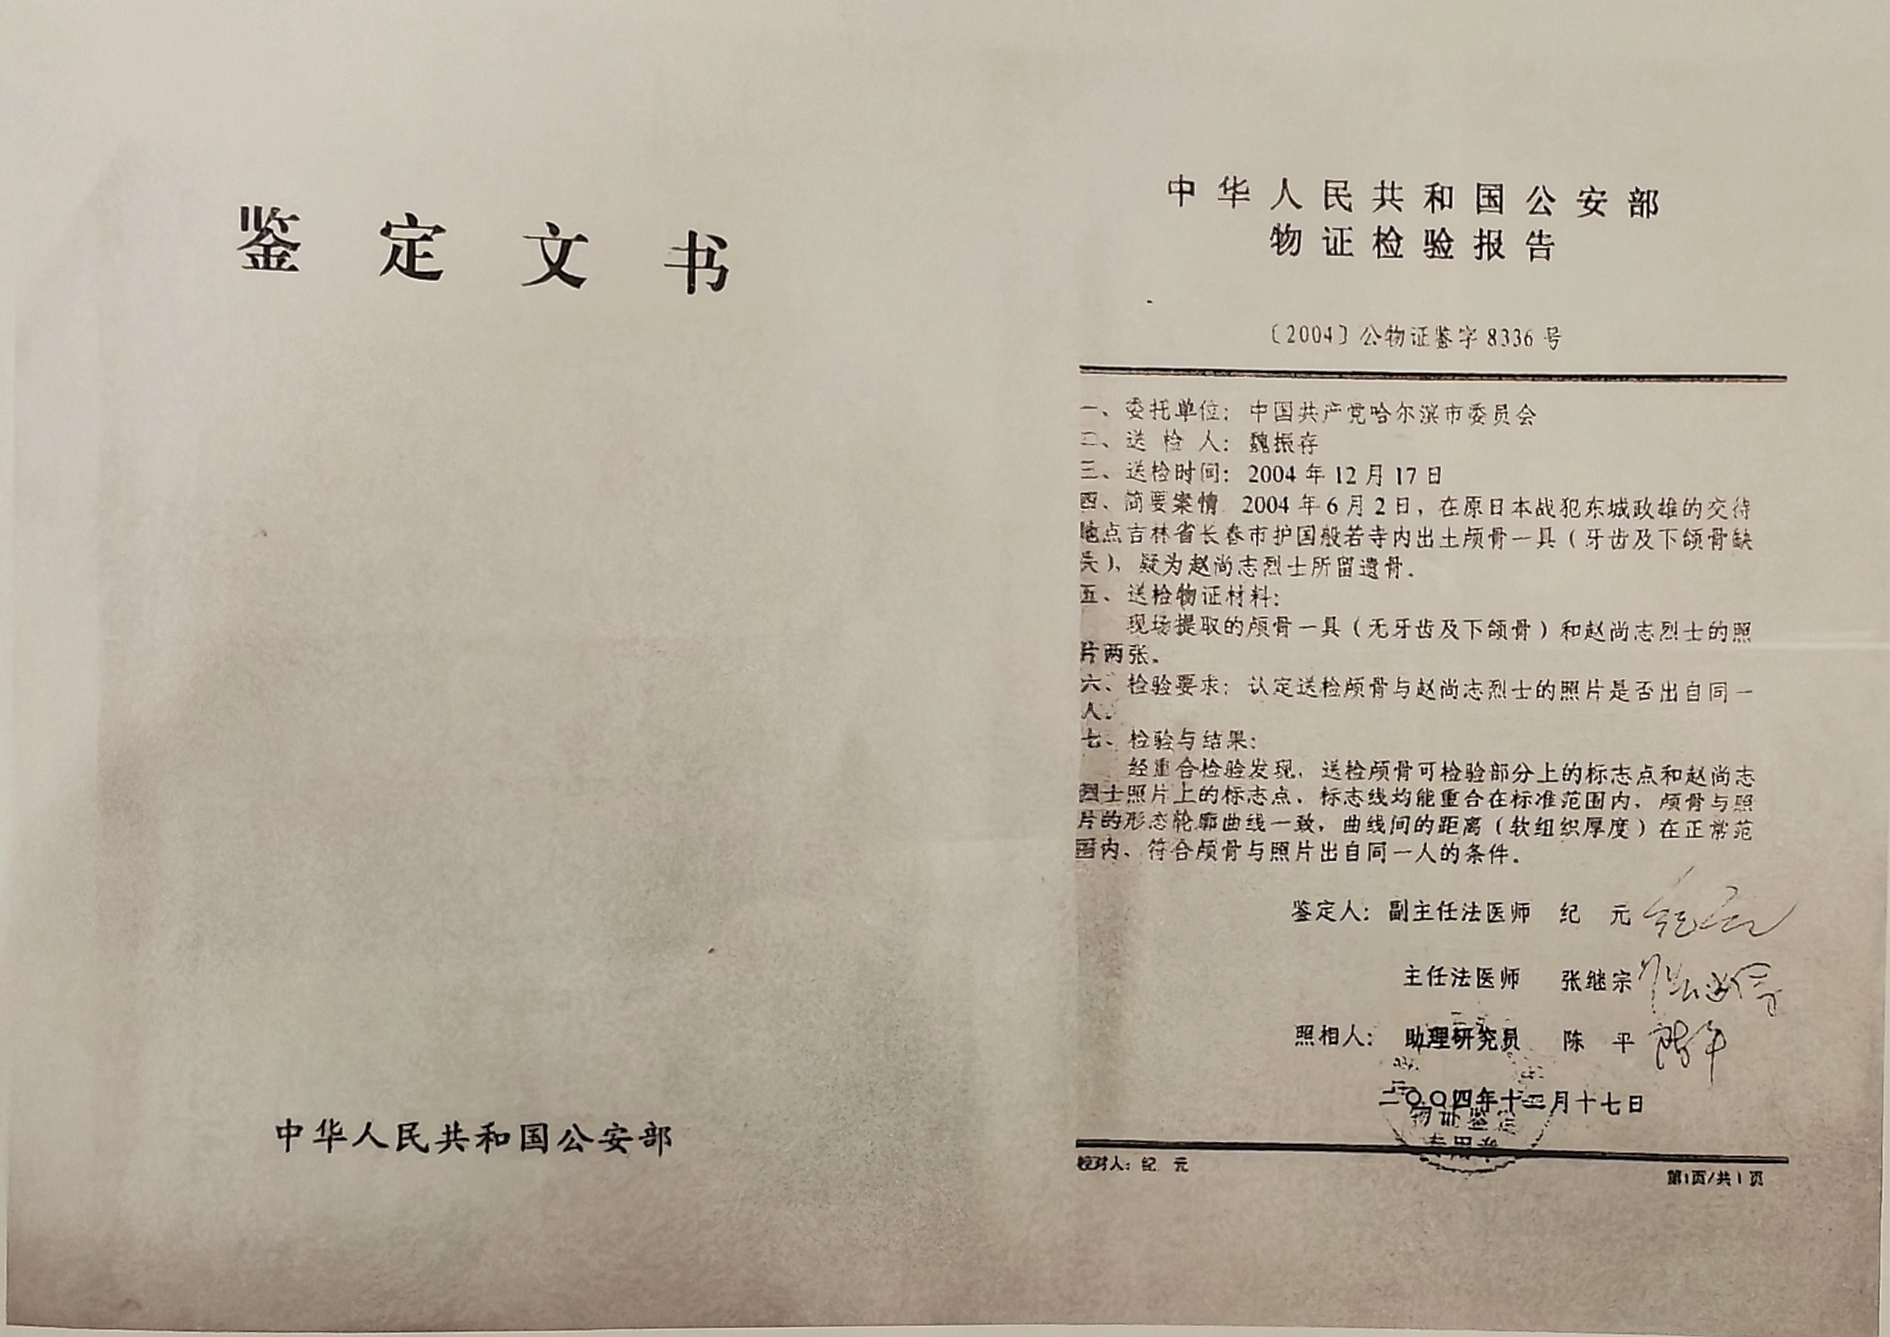 鉴定文书
中华人民共和国公安部
中华人民共和国公安部
物证检验报告
〔2004〕公物证鉴字8336号
一、委托单位：中国共产党哈尔滨市委员会
二、送检人：魏振存
三、送检时间：2004年12月17日
四、简要案情 2004年6月2日，在原日本战犯东城政雄的交待
地点吉林省长春市护国般若寺内出土颅骨一具（牙齿及下颌骨缺
失），疑为赵尚志烈士所留遗骨。
五、送检物证材料：
现场提取的颅骨一具（无牙齿及下颌骨）和赵尚志烈士的照
片两张。
六、检验要求：认定送检颅骨与赵尚志烈士的照片是否出自同一
人。
七、检验与结果：
经重合检验发现，送检颅骨可检验部分上的标志点和赵尚志
烈士照片上的标志点、标志线均能重合在标准范围内，颅骨与照
片的形态轮廓曲线一致，曲线间的距离（软组织厚度）在正常范
围内、符合颅骨与照片出自同一人的条件。
鉴定人：副主任法医师 纪元 纪元
主任法医师 张继宗 张继宗
照相人：助理研究员 陈平 陈平
二〇〇四年十二月十七日
物证鉴定
专用章
校对人：纪元
第1页/共1页